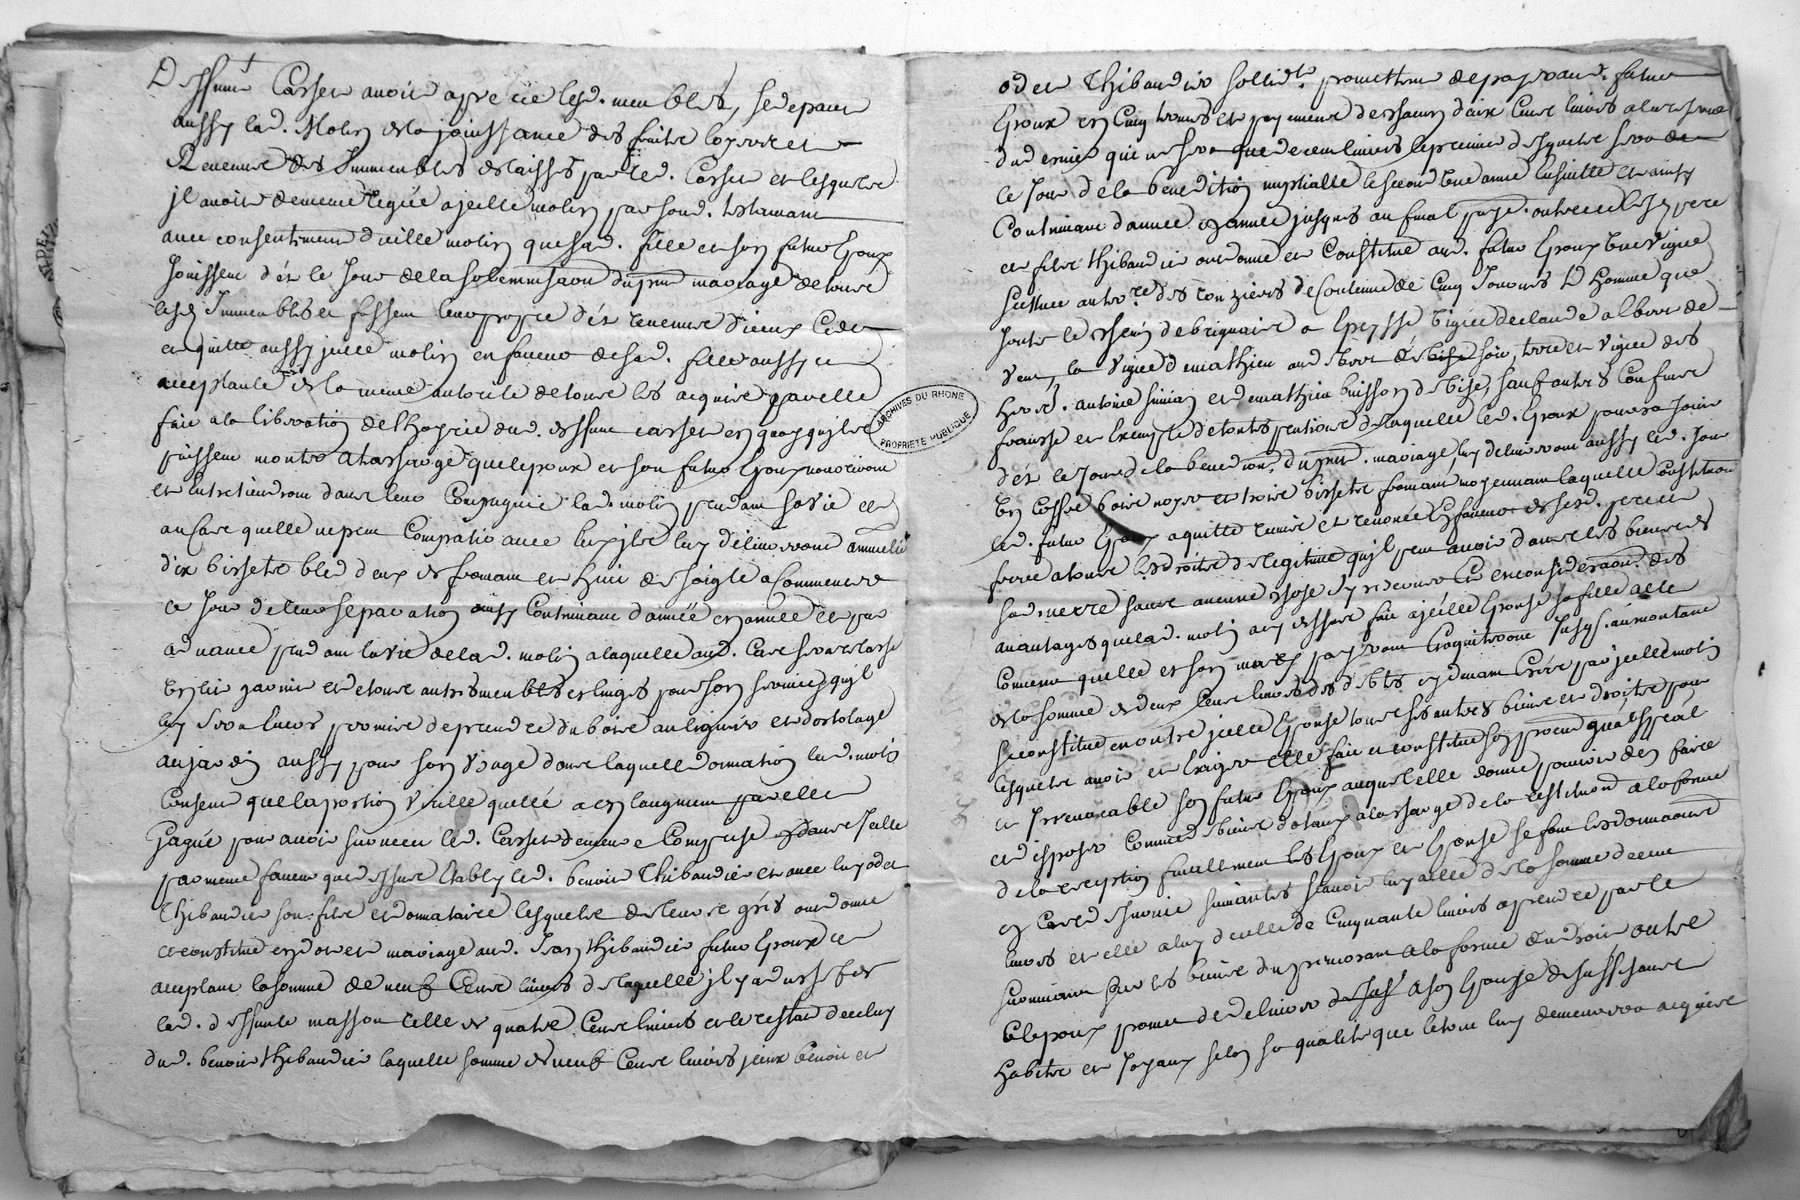 Deffunt Casset avoit apretiée lesd. meubles, se depart
aussy lad. Molin de la joüissance des fruits loyers et
Revenus des Immeubles delaissés par led. Casset et lesquels
jl avoit de meme legüé a jcelle molin par sond. testamant
avec consentement d'icelle molin que sad. fille et son futur Epoux
Jouissent d'éz le Jour de la solemnisaõn du pnt mariage de tous
lesd. Immeubles et fassent leur propre d'éz revenus d'iceux Cede
et quitte aussy jcelle molin en faveur de sad. fille aussy
acceptante de la meme autorite de tous les acquits par elle
fait a la libération de l'hoyrie dud. deffunt casset en quoy quils
puissent monter a la charge que lepouse et son futur Epoux nourriront
et entretiendront dans leur Compagnie lad. molin pendant sa vie et
au Cas quelle ne peut Compatir avec eux jls luy délivreront annuelt.
dix bissets bled deux de froment et huit de soigle a Commencer
le Jour de leur separation ainsy Continuant d'année en année et par
advance pendant la vie de lad. molin a laquelle aud. Cas sera relaché
un lit garnie et de tous autres meubles et linges pour son service quil
luy sera permis de prendre du bois au ligniér et d'ortolage
au jardin aussy pour son Usage dans laquelle donnation lad. molin
Consent que la portion Virille quelle a en l'augment par elle
Gagné pour avoir survecu led. Casset demeure Comprise dans Jcelle
par meme faveur que dessus Etably led. benoit Thibaudier et avec luy odet
Thibaudier son fils et donnataire lesquels de leur gré ont donné
et constitué en dot et mariage aud. Jean thibaudier futur Epoux
acceptant la somme de neuf Cent livres de laquelle jl y a du chef de
lad. deffunte masson celle de quatre Cent livres et le restant de celuy
dud. benoit thibaudier laquelle somme de neuf Cent livres jceux benoit et
odet Thibaudier sollidt. promettent de payer aud. futur
Epoux en Cinq termes et payements de chacun d'eux Cent livres a la reserve
du dernier qui ne sera que de cent livres le premier desquels sera de
ce Jour de la benedition nuptialle le second une année ensuitte et ainsy
Continuant d'année en année jusques au final paye. outre ce lesd. pere
et fils thibaudier ont donné et Constitué aud. futur Epoux une Vigne
scittuée au terre. des ronziers de Contenüe de Cinq Journés d'homme que
Jouste le chemin de brignais a Epeysse bize vigne de claude alberd de
vent, la vigne de mathieu de soir, terre et vigne des
hers. antoine simian et de mathieu buisson de bize, sauf autres Confins
franche et Exempte de toutes pentions de laquelle led. Epoux pourra Jouir
d'éz le jour de la benediõn. du pnt. mariage, luy delivreront aussy led. Jour
un coffre bois noyer et trois bissets froment moyennant laquelle constituõn
led. futur Epoux a quitté remis et renoncé En faveur de sesd. pere et
frere a tous les droits de legitime quil peut avoir dans les biens de
sad. mere sauf aucune chose s'y reserver Et en consideraõn des
avantages que lad. molin a cy dessus fait a jcelle Epouse sa fille a elle
Convenu quelle et son mary payeront Et aquiteront Jusqs. au montant
de la somme de deux Cent livres des dets cydevant Créé par jcelle molin
se constitue en outre jcelle Epouse tous ses autres biens et droits pour
lesquels avoir et Exiger elle fait et constitue son procur. gnâl spéal
et Irrevocable son futur Epoux auquel elle donne pouvoir d'en faire
et disposer Comme de biens dotaux a la charge de la restitution a la forme
de la reception finallement les Epoux et Epouse se font les donnaõns
en Cas de survie suivantes scavoir luy a elle de la somme de cent
livres et elle a luy de celle de Cinquante livres a prendre par le
survivant sur les biens du premorant a la forme du droit outre
Et lepoux promet de delivrer a son Epouse de suffisant
habits et Joyaux selon sa qualite que le tout luy demeurera acquis
ARCHIVES DU RHONE
PROPRIETE PUBLIQUE